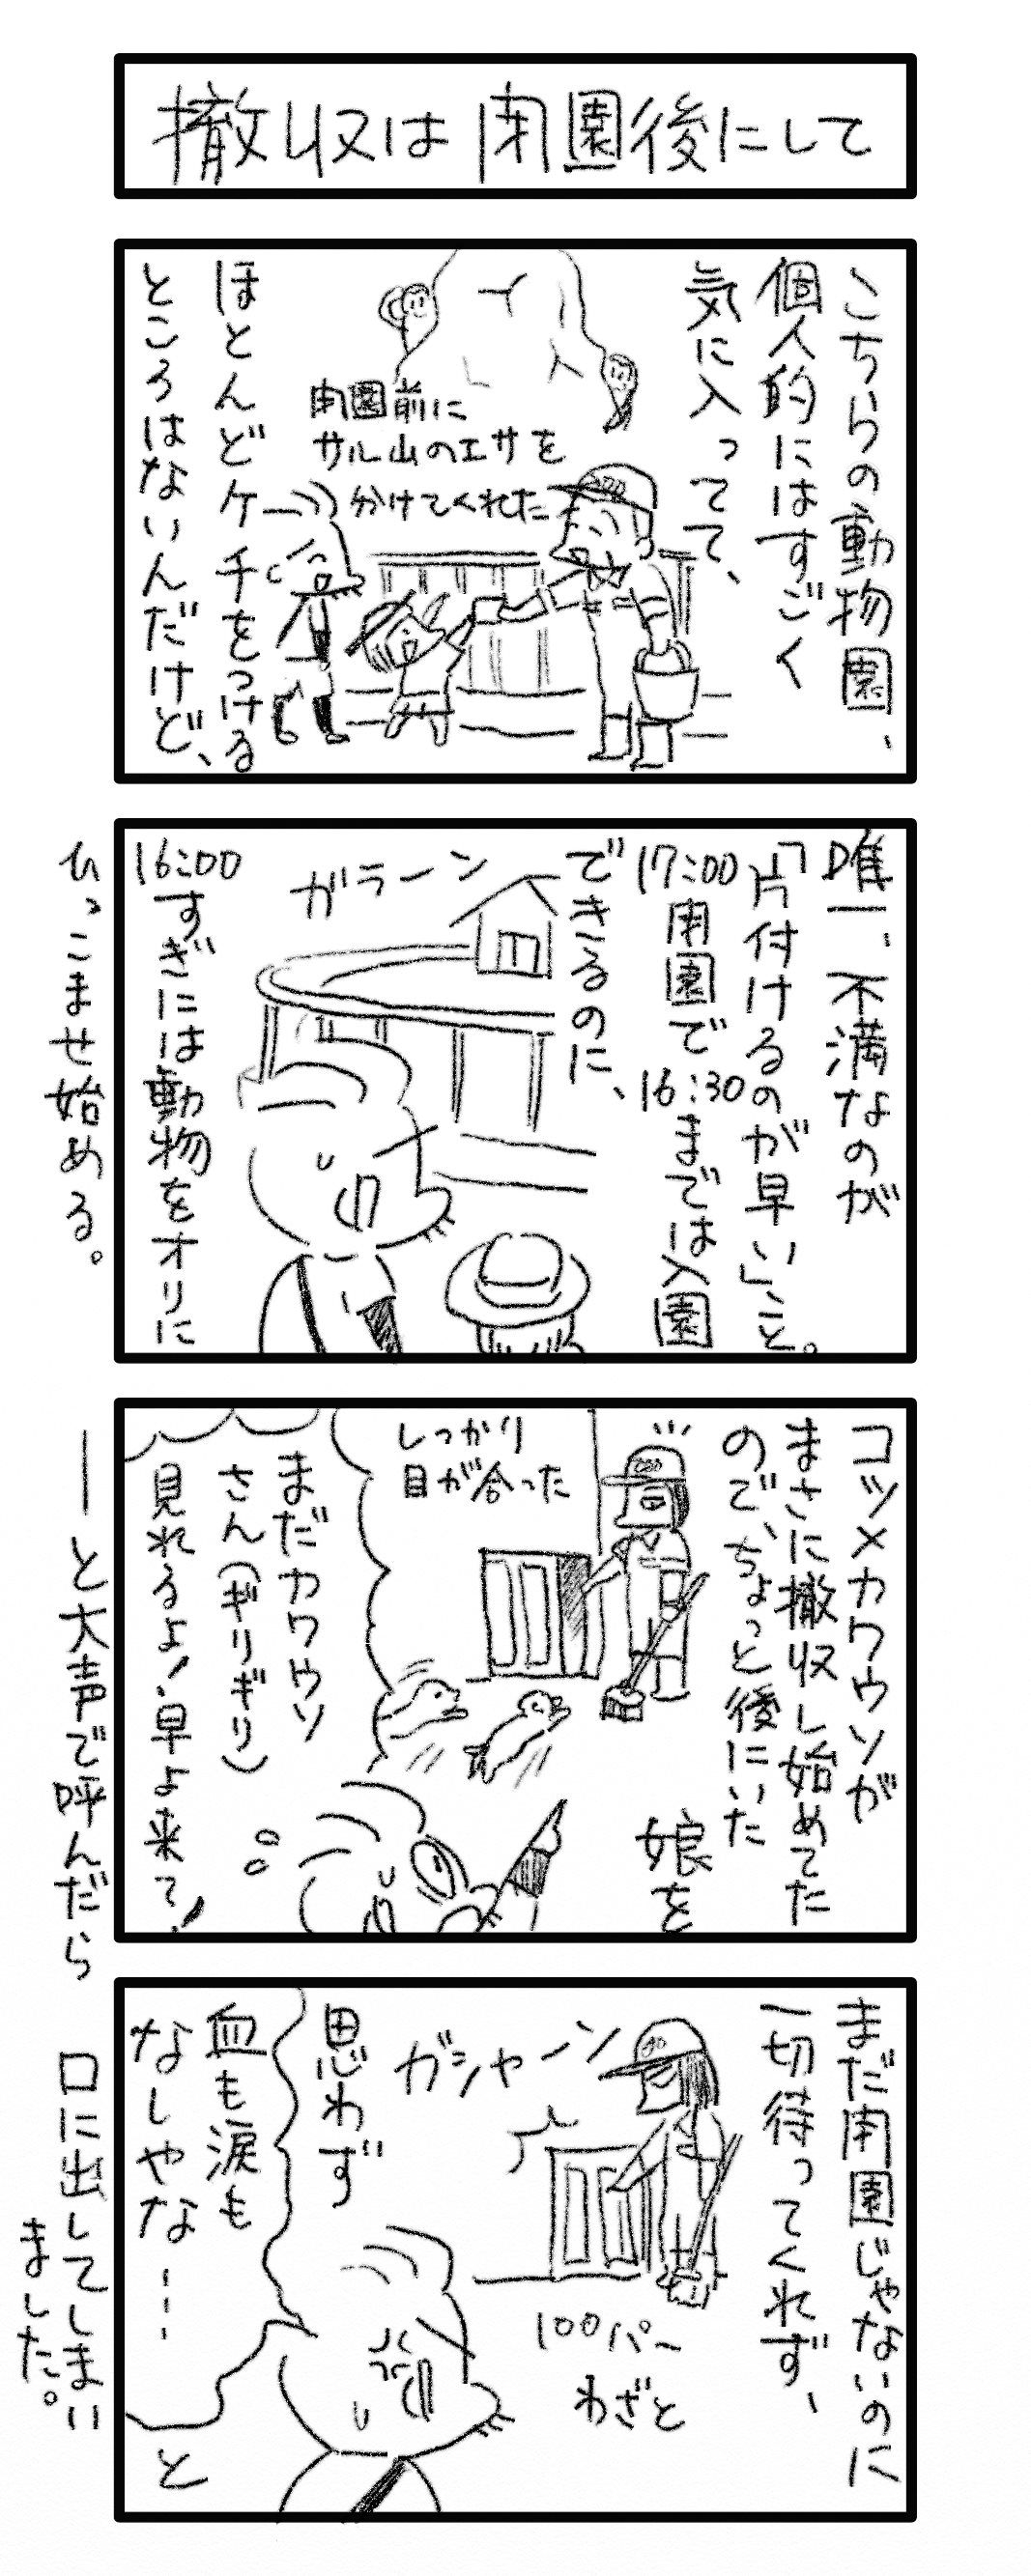 撤収は閉園後にして
こちらの動物園、
個人的にはすごく
気に入ってて、
閉園前に
サル山のエサを
分けてくれた
ほとんどケチをつける
ところはないんだけど、
唯一、不満なのが
「片付けるのが早い」こと。
17:00閉園で16:30までは入園
できるのに、
ガラーン
16:00すぎには動物をオリに
ひっこませ始める。
コツメカワウソが
まさに撤収し始めてた
ので、ちょっと後にいた
娘を
しっかり
目が合った
まだカワウソ
さん(ギリギリ)
見れるよ!早よ来て!
―と大声で呼んだら
まだ閉園じゃないのに
一切待ってくれず、
ガシャーン
100パー
わざと
思わず
血も涙も
なしやな……と
口に出してしまい
ました。